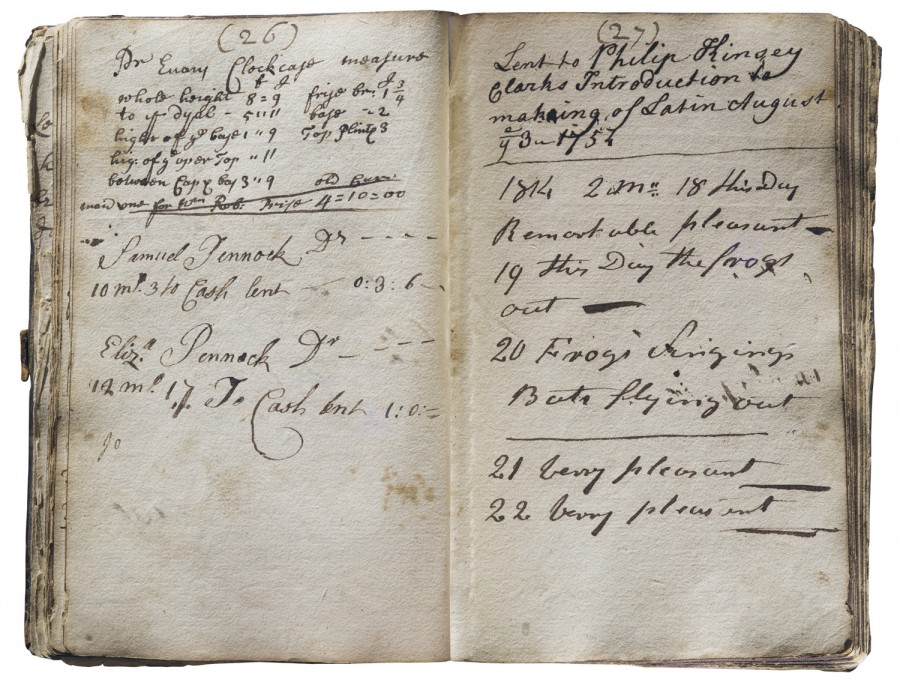 (26)
Dr Evans Clockcase measure
f I
whole height 8=9 frise br: 1 3/4
to ye dyal - 5"11 base - 2
hight of ye base 1"9 Top plint 3
hig: of ye uper Top "11
between Cap & bas 3"9
maid one for Rob. Prise 4=10=00
Samuel Pennock Dr - - - -
10 mo. 3 to Cash lent - 0:3:6 -
Eliza Pennock Dr - - - -
12 mo 17 To Cash lent 1:0:=
Jo
(27)
Lent to Philip Kinsey
Clarks Introduction to
making of Latin August
ye 3 1757
1814 2 mo 18 this Day
Remarkable pleasant
19 this Day the frogs
out
20 Frogs Singing
Bats flying out
21 verry pleasant
22 verry pleasent